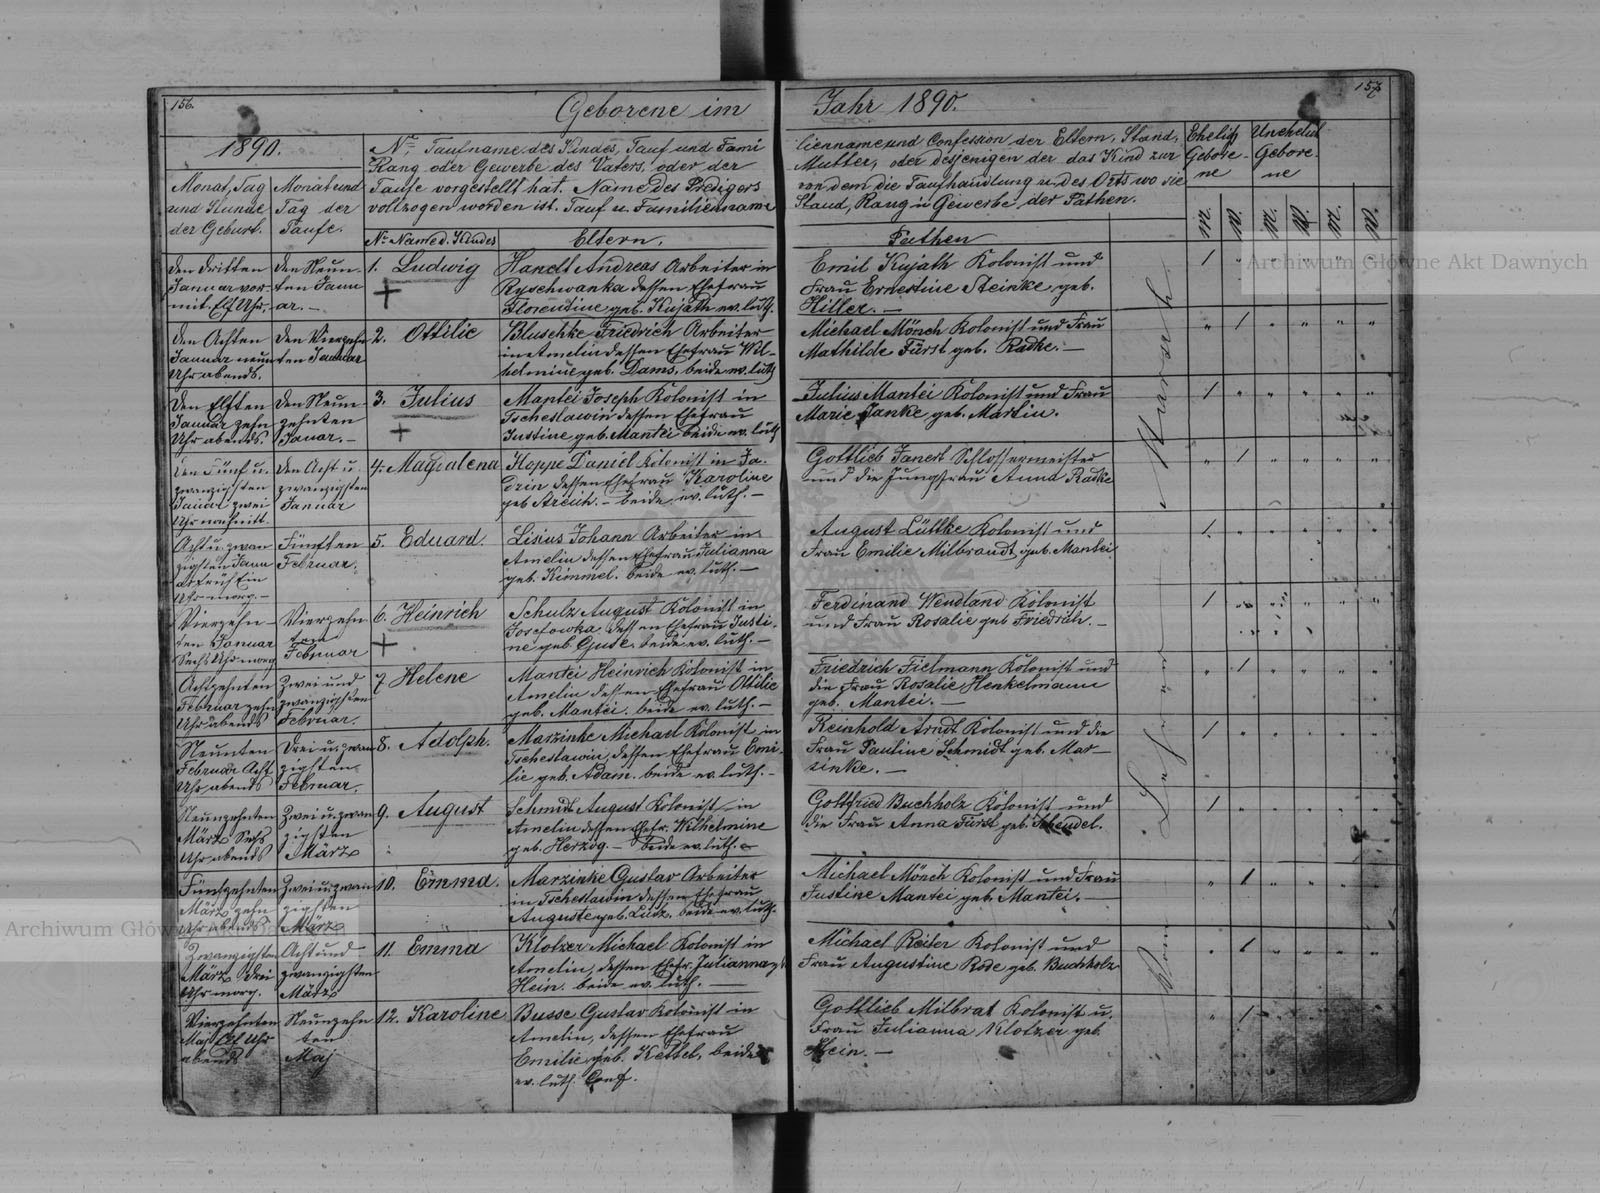 156.
157
Geborene im Jahr 1890.
1890.
Monat, Tag
und Stunde
der Geburt.
Monat und
Tag der
Taufe.
No Taufname des Kindes, Tauf und Fami
Rang oder Gewerbe des Vaters, oder der
Taufe vorgestellt hat. Name des Predigers
vollzogen worden ist. Tauf u. Familienname
lienname und Confession der Eltern, Stand,
Mutter, oder desjenigen der das Kind zur
von dem die Taufhandlung u. des Orts wo sie
Stand, Rang u Gewerbe der Pathen.
Ehelig
Gebore-
ne
Unehelid
Gebore-
ne
No Name d. Kindes
Eltern.
Pathen
M. W. M. W. M. W.
den dritten
Januar vor-
mit. Elf Uhr.
den Neun-
ten Janu
ar. —
1. Ludwig
Handt Andreas Arbeiter in
Ryschwanka dessen Ehefrau
Florentine geb. Kujath ev. luth.
Emil Kujath Kolonist und
Frau Ernestine Steinke geb.
Hiller. —
den Achten
Januar neun
Uhr abends.
den Vierzehn
ten Januar
2. Ottilie
Bluschke Friedrich Arbeiter
in Amelin dessen Ehefrau Wil-
helmine geb. Dams. beide ev. luth
Michael Mönch Kolonist und Frau
Mathilde Fürst geb. Radke. —
den Elften
Januar zehn
Uhr abends.
den Neun
zehnten
Januar. —
3. Julius
Mantei Joseph Kolonist in
Tscheslawin dessen Ehefrau
Justine geb. Mantei beide ev. luth
Julius Mantei Kolonist und Frau
Marie Janke geb. Martin.
den Fünf u.
zwanzigsten
Januar zwei
Uhr nachmitt.
den Acht u.
zwanzigsten
Januar
4. Magdalena
Hoppe Daniel Kolonist in Ja-
drin dessen Ehefrau Karoline
geb. — beide ev. luth. —
Gottlieb Janert Schlossermeister
und die Jungfrau Anna Radke
Acht u. zwan
zigsten Janu
ar früh Ein
Uhr morg. —
Fünften
Februar.
5. Eduard.
Lisius Johann Arbeiter in
Amelin dessen Ehefrau Julianna
geb. Kimmel. beide ev. luth. —
August Lüttke Kolonist und
Frau Emilie Milbrandt geb. Mantei
Vierzehn-
ten Januar
Sechs Uhr morg
Vierzehn
ten
Februar
6. Heinrich
Schulz August Kolonist in
Josefowka dessen Ehefrau Justi-
ne geb. Gust. beide ev. luth. —
Ferdinand Wendland Kolonist
und Frau Rosalie geb Friedrich. —
Achtzehnten
Februar zehn
Uhr abends
Zwei und
zwanzigsten
Februar.
7 Helene
Mantei Heinrich Kolonist in
Amelin dessen Ehefrau Ottilie
geb. Mantei. beide ev. luth. —
Friedrich Fielmann Kolonist und
die Frau Rosalie Henkelmann
geb. Mantei. —
Neunten
Februar Acht
Uhr abends
Drei u. zwan
zigsten
Februar.
8. Adolph.
Marzinke Michael Kolonist in
Tscheslawin, dessen Ehefrau Emi-
lie geb. Adam. beide ev. luth. —
Reinhold Arndt Kolonist und die
Frau Pauline Schmidt geb. Mar-
zinke. —
Neunzehnten
März Sechs
Uhr abends
Zwei u. zwan
zigsten
März
9. August
Schmidt August Kolonist in
Amelin dessen Ehefr. Wilhelmine
geb. Herzog. — beide ev. luth. —
Gottfried Buchholz Kolonist und
die Frau Anna Fürst geb. Schendel.
Fünfzehnten
März zehn
Uhr abends
Zwei u. zwan
zigsten
März
10. Emma.
Marzinke Gustav Arbeiter
in Tscheslawin dessen Ehefrau
Auguste geb. Ludz. beide ev. luth.
Michael Mönch Kolonist und Frau
Justine Mantei geb. Mantei. —
Zwanzigsten
März Drei
Uhr morg.
Acht und
zwanzigsten
März
11. Emma
Klotzer Michael Kolonist in
Amelin, dessen Ehefr. Julianna g.
Hein. beide ev. luth. —
Michael Reiter Kolonist und
Frau Augustine Rode geb. Buchholz
Vierzehnten
Maj Elf Uhr
abends
Neunzehn
ten
Maj
12. Karoline
Busse Gustav Kolonist in
Amelin, dessen Ehefrau
Emilie geb. Kettel, beide
ev. luth. Conf.
Gottlieb Milbrat Kolonist u.
Frau Julianna Klotzer geb
Hein. —
Vom Lehrer
Archiwum Główne Akt Dawnych
Archiwum Główne Akt Dawnych